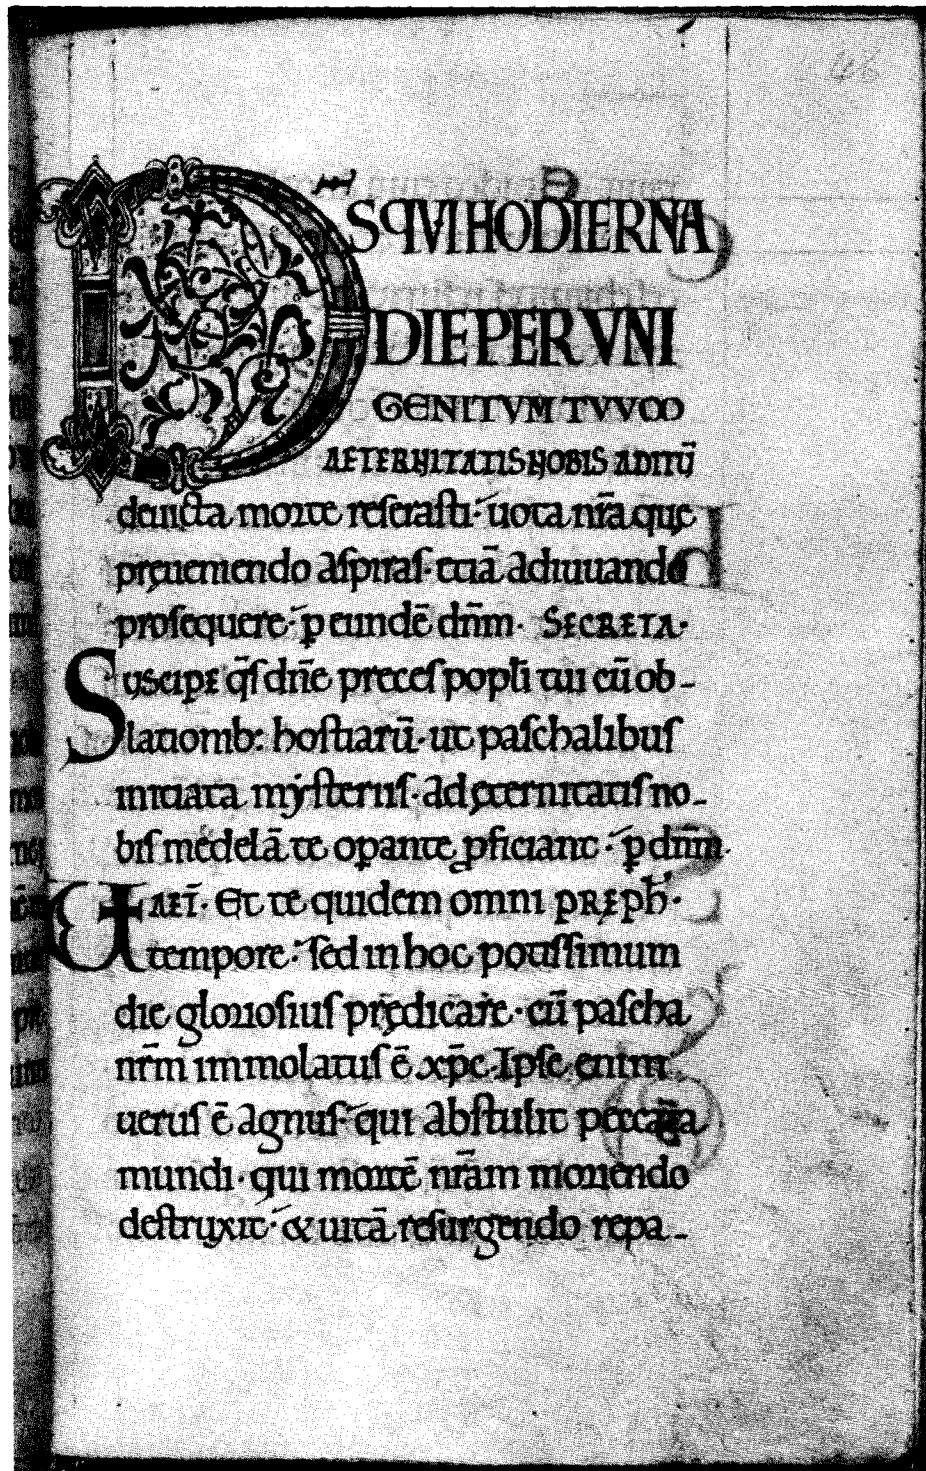 46
DS̄ QVI HODIERNA
DIE PER VNI
GENITVM TVVM
AETERNITATIS NOBIS ADITŪ
deuicta morte reserasti· uota nr̄a quę
pręueniendo aspiras· etiā adiuuando
prosequere· ꝑ eundē dn̄m· SECRETA·
Suscipe qs̄ dn̄e preces popłi tui cū ob-
lationib: hostiarū· ut paschalibus
initiata mẏsteriis· ad ęternitatis no-
bis medelā te oꝑante ꝓficiant· ꝑ dn̄m·
UD AET̄· Et te quidem omni PRĘPH̄·
tempore· sed in hoc potissimum
die gloriosius prędicare· cū pascha
nr̄m immolatus ē xp̄c· Ipse enim
uerus ē agnus· qui abstulit peccata
mundi· qui mortē nr̄am moriendo
destruxit· & uitā resurgendo repa-